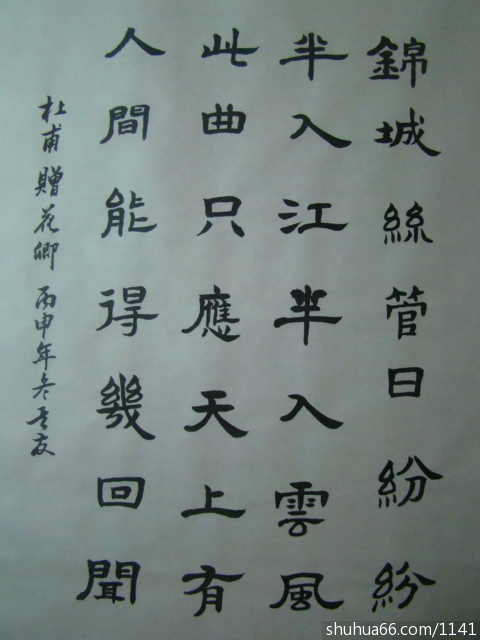 錦城絲管日紛紛
半入江半入雲風
此曲只應天上有
人間能得幾回聞
杜甫贈花卿 丙申年冬
shuhua66.com/1141